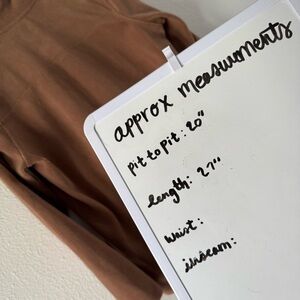 approx measurments
Pit to Pit: 20"
length: 27"
waist:
inseam: